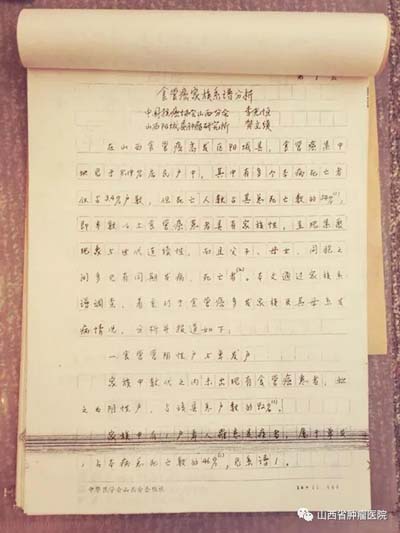 第 1 页
食管癌家族系谱分析
中国抗癌协会山西分会 李光恒
山西阳城县肿瘤研究所
在山西食管癌高发区阳城县，食管癌集中
地见于 居民户中，其中有多个本病死亡者
仅占3.4%户数，但死亡人数占其总死亡数的
即半数以上食管癌患者具有家族性，呈现集聚
现象与世代连续性，而且父子、母女、同胞之
间多见有同期发病、死亡者。本文通过家族系
谱调查，着重对于食管癌多发家族及其母系发
病情况，分析并报道如下：
一、食管癌阴性户与单发户
家族中数代之内未出现有食管癌患者，拟
之为阴性户，占该县总户数的92%。
家族中有1户1人罹患是癌者，属于单发
，占本病总死亡数的46%，见系谱1。
中华医学会山西分会稿纸
山西省肿瘤医院